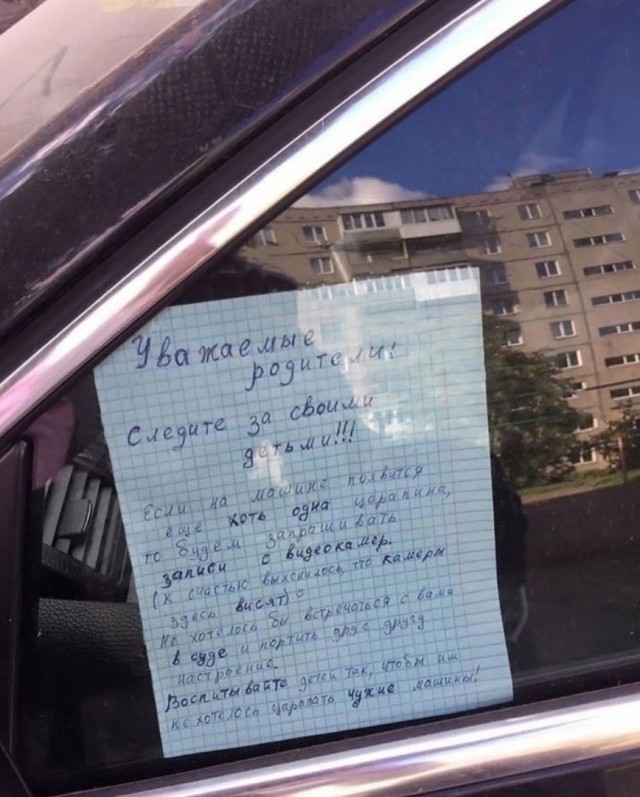 Уважаемые
родители!
Следите за своими
детьми!!!
Если на машине появится
еще хоть одна царапина,
то будем запрашивать
записи с видеокамер.
(к счастью выяснилось, что камеры
здесь висят)
Не хотелось бы встречаться с вами
в суде и портить друг другу
настроение.
Воспитывайте детей так, чтобы им
не хотелось царапать чужие машины!